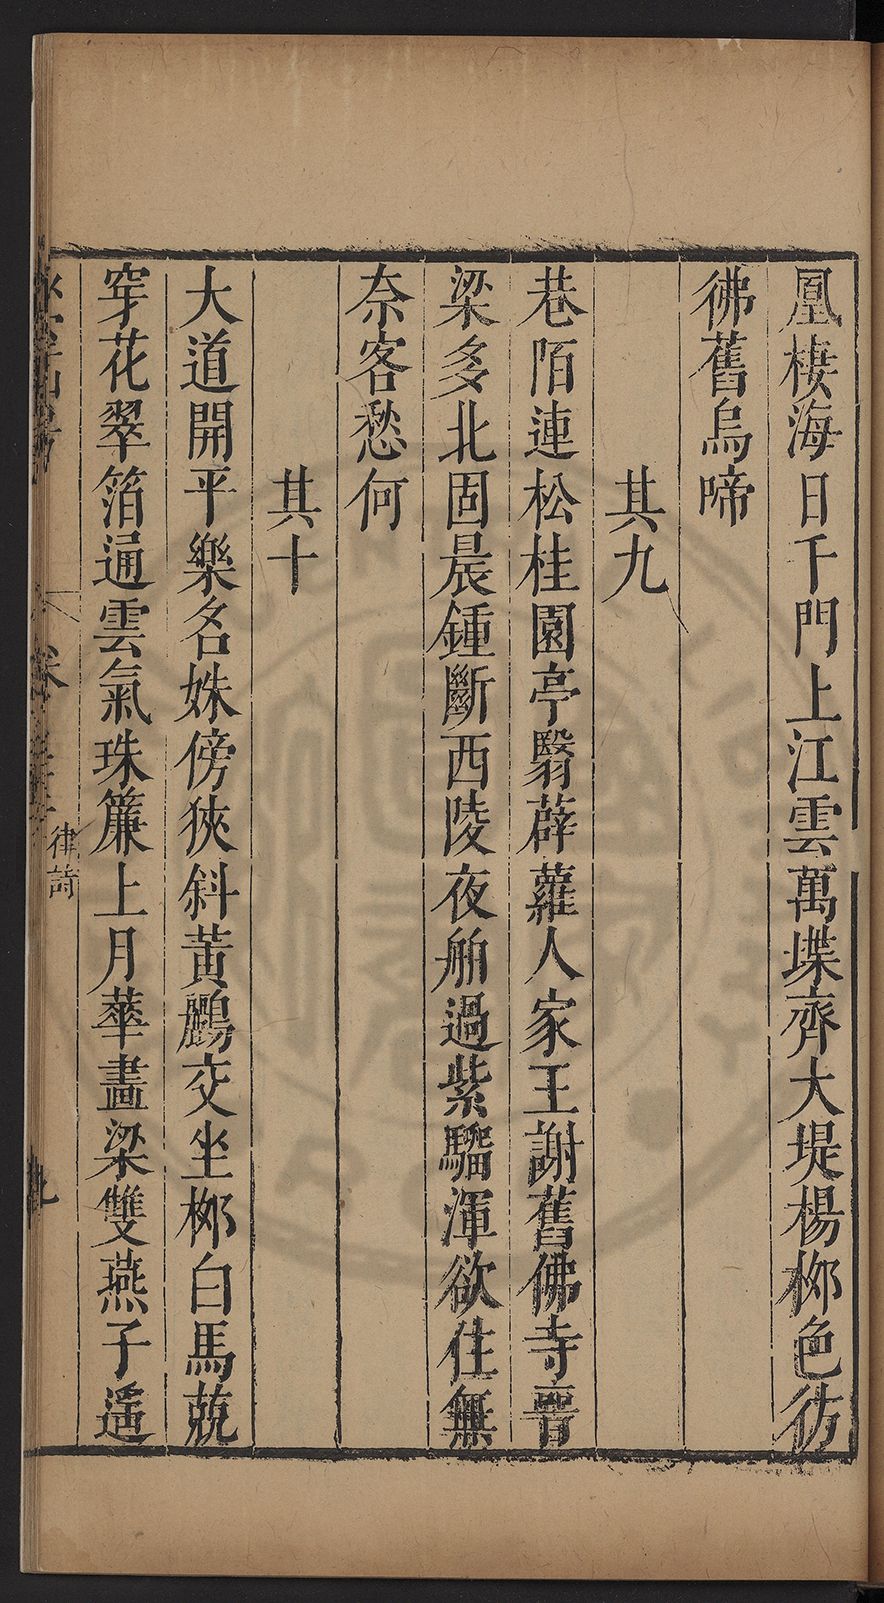 凰棲海日千門上江雲萬堞齊大堤楊栁色彷
彿舊烏啼
其九
巷陌連松桂園亭翳薜蘿人家王謝舊佛寺晉
梁多北固晨鍾斷西陵夜舶過紫騮渾欲住無
奈客愁何
其十
大道開平樂名姝傍狹斜黃鸝交坐栁白馬競
穿花翠箔通雲氣珠簾上月華畵梁雙燕子遙
卷
律詩
九